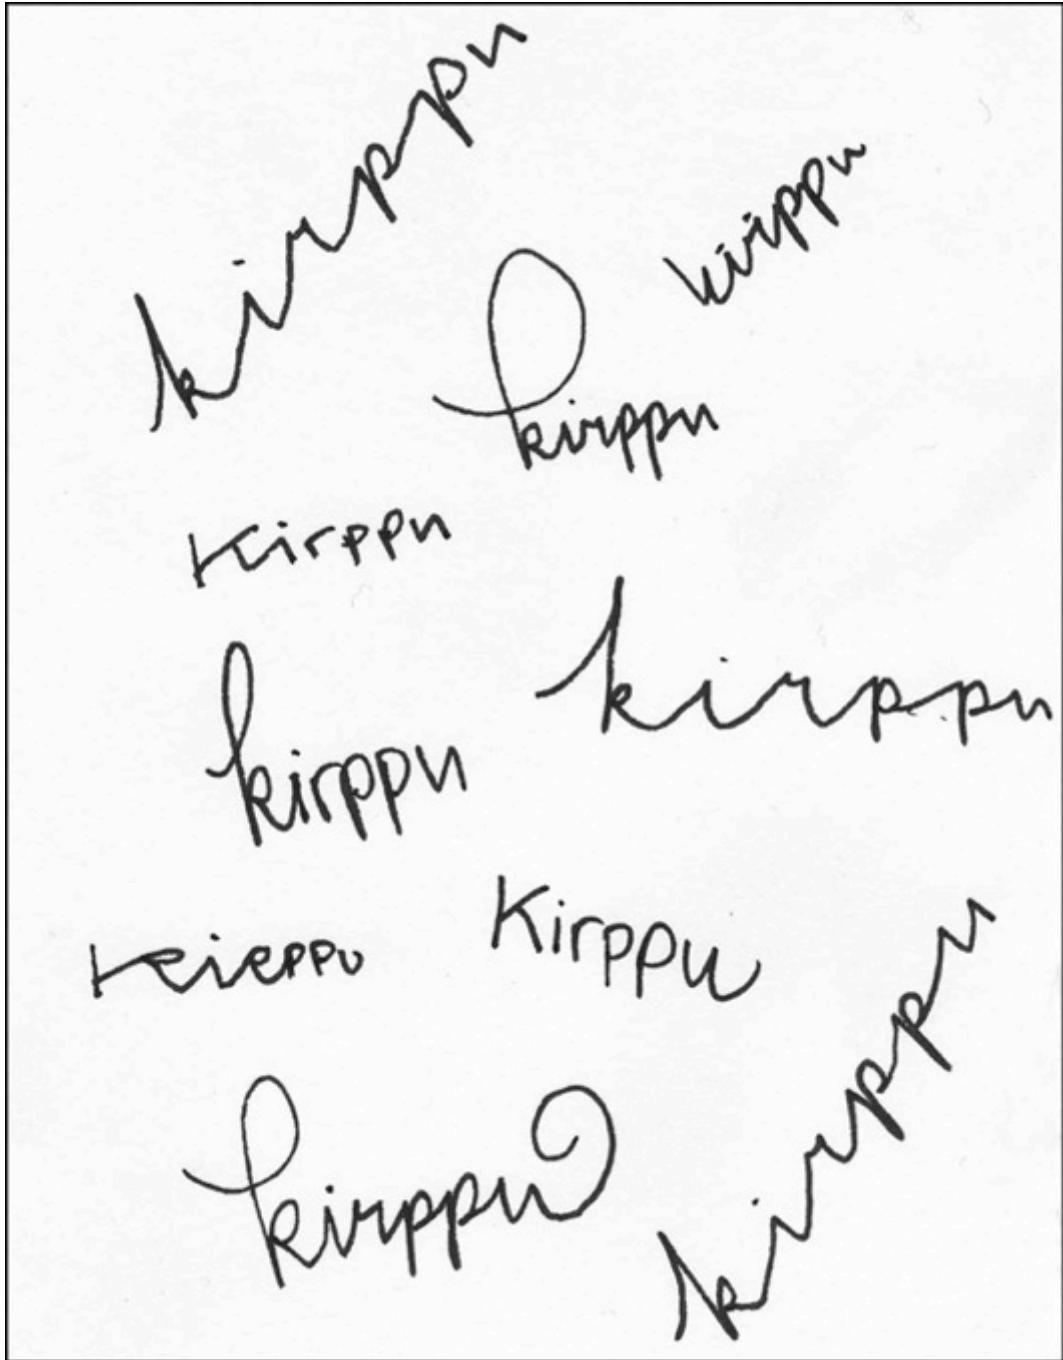 kirppu
kirppu
kirppu
Kirppu
kirppu
kirppu
Kirppu
kirppu
kirppu
kirppu